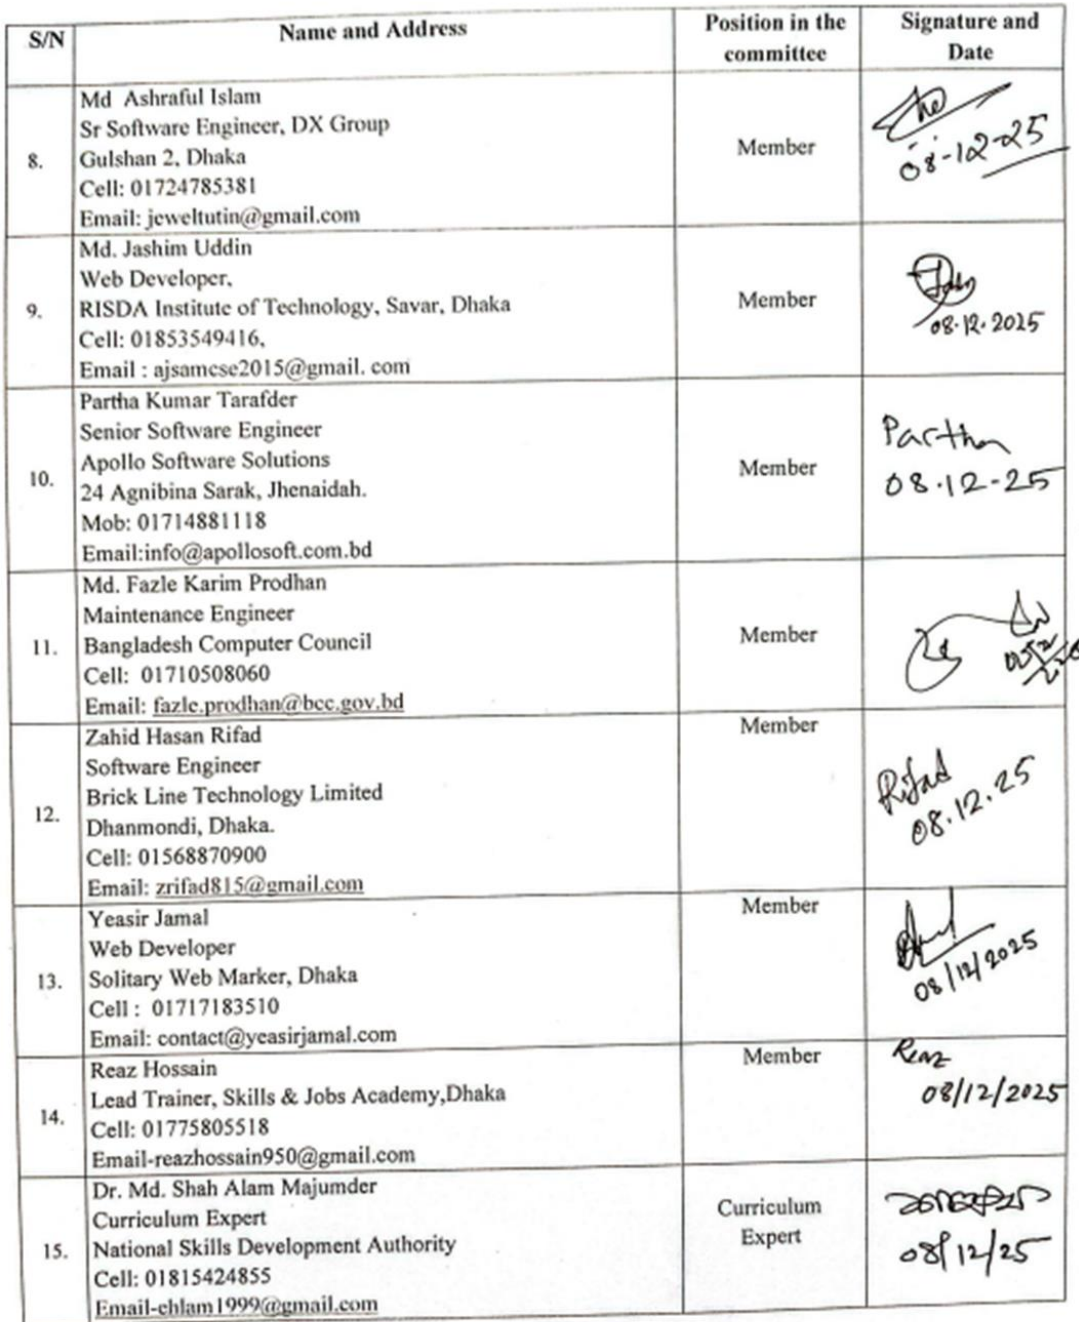 S/N
Name and Address
Position in the
committee
Signature and
Date
8.
Md Ashraful Islam
Sr Software Engineer, DX Group
Gulshan 2, Dhaka
Cell: 01724785381
Email: jeweltutin@gmail.com
Member
08-12-25
9.
Md. Jashim Uddin
Web Developer,
RISDA Institute of Technology, Savar, Dhaka
Cell: 01853549416,
Email : ajsamcse2015@gmail. com
Member
08.12.2025
10.
Partha Kumar Tarafder
Senior Software Engineer
Apollo Software Solutions
24 Agnibina Sarak, Jhenaidah.
Mob: 01714881118
Email:info@apollosoft.com.bd
Member
Partha
08.12-25
11.
Md. Fazle Karim Prodhan
Maintenance Engineer
Bangladesh Computer Council
Cell: 01710508060
Email: fazle.prodhan@bcc.gov.bd
Member
12.
Zahid Hasan Rifad
Software Engineer
Brick Line Technology Limited
Dhanmondi, Dhaka.
Cell: 01568870900
Email: zrifad815@gmail.com
Member
Rifad
08.12.25
13.
Yeasir Jamal
Web Developer
Solitary Web Marker, Dhaka
Cell : 01717183510
Email: contact@yeasirjamal.com
Member
08/12/2025
14.
Reaz Hossain
Lead Trainer, Skills & Jobs Academy,Dhaka
Cell: 01775805518
Email-reazhossain950@gmail.com
Member
Reaz
08/12/2025
15.
Dr. Md. Shah Alam Majumder
Curriculum Expert
National Skills Development Authority
Cell: 01815424855
Email-ehlam1999@gmail.com
Curriculum
Expert
08/12/25